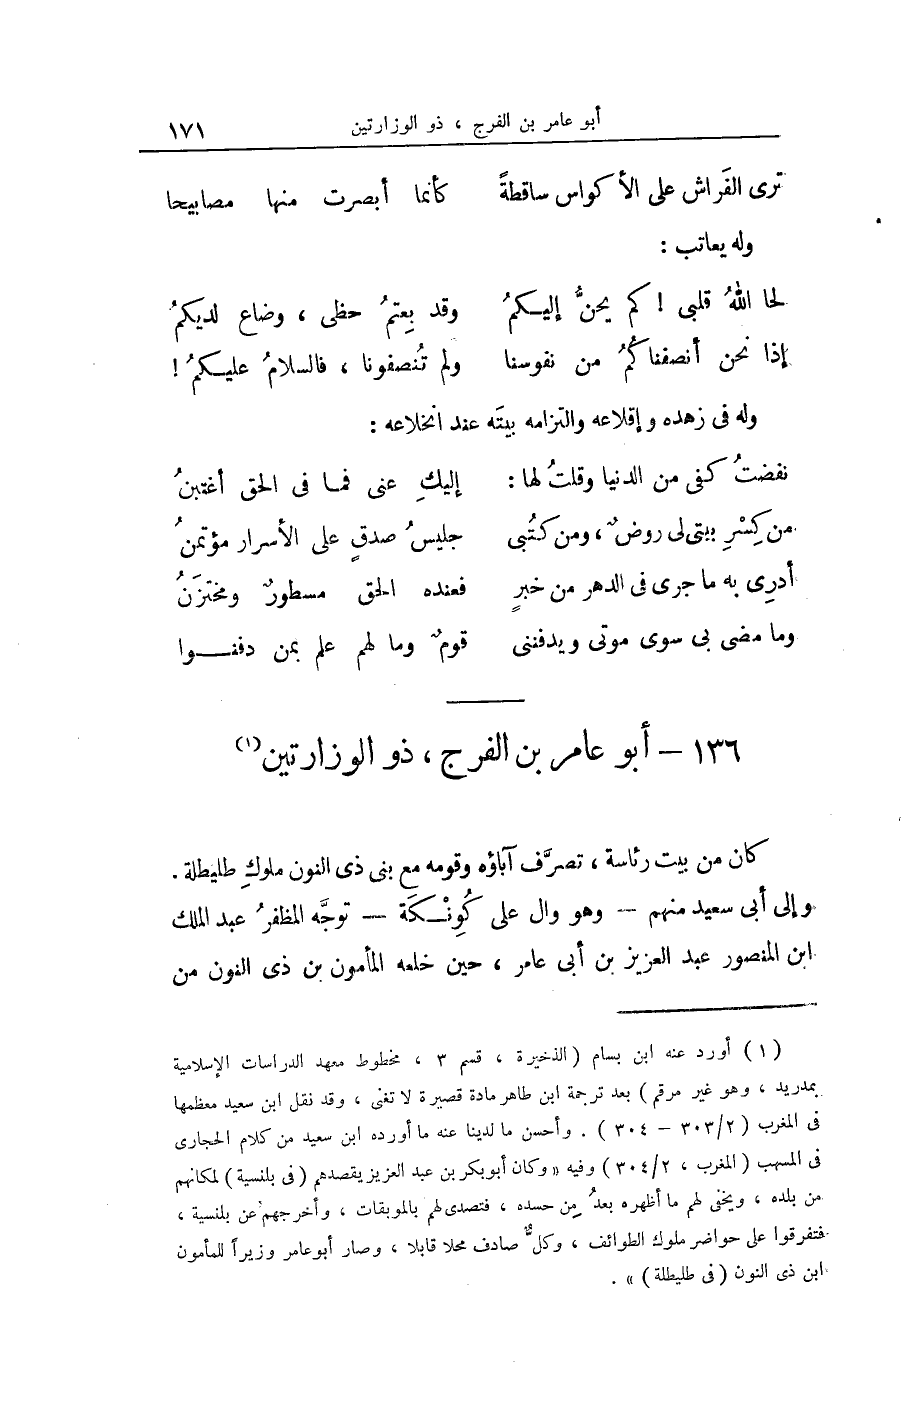 أبو عامر بن الفرج ، ذو الوزارتين ١٧١
ترى الفَراش على الأكواس ساقطةً كأنما أبصرت منها مصابيحا
وله يعاتب :
لحا اللهُ قلبى ! كم يحنُّ إليـكمُ وقد بِعتمُ حظى ، وضاع لديكمُ
إذا نحن أنصفناكمُ من نفوسنا ولم تُنصفونا ، فالسلامُ عليـكمُ !
وله فى زهده وإقلاعه والتزامه بيتَه عند انخلاعه :
نفضتُ كفى من الدنيا وقلتُ لها : إليكِ عنى فمـا فى الحق أغتبنُ
من كِسْرِ بيتى لى روضٌ ، ومن كتُبى جليسُ صدقٍ على الأسرار مؤتمنُ
أدرِى به ما جرى فى الدهر من خبرٍ فعنده الحق مسطورٌ ومختزَنُ
وما مضى بى سوى موتى ويدفننى قومٌ وما لهم علم بمن دفنـــوا
١٣٦ – أبو عامر بن الفرج ، ذو الوزارتين (١)
كان من بيت رئاسة ، تصرَّف آباؤه وقومه مع بنى ذى النون ملوكِ طليطلة .
وإلى أبى سعيد منهم — وهو وال على كُونْـكَة — توجَّه المظفرُ عبد الملك
ابن المنصور عبد العزيز بن أبى عامر ، حين خلعه المأمون بن ذى النون من
(١) أورد عنه ابن بسام (الذخيرة ، قسم ٣ ، مخطوط معهد الدراسات الإسلامية
بمدريد ، وهو غير مرقم) بعد ترجمة ابن طاهر مادة قصيرة لا تغنى ، وقد نقل ابن سعيد معظمها
فى المغرب (٢/٣٠٣ – ٣٠٤) . وأحسن ما لدينا عنه ما أورده ابن سعيد من كلام الحجارى
فى المسهب (المغرب ، ٢/٣٠٤) وفيه « وكان أبو بكر بن عبد العزيز يقصدهم (فى بلنسية) لمكانهم
من بلده ، ويخفى لهم ما أظهره بعدُ من حسده ، فتصدى لهم بالموبقات ، وأخرجهم عن بلنسية ،
فتفرقوا على حواضر ملوك الطوائف ، وكلٌّ صادف محلا قابلا ، وصار أبو عامر وزيراً للمأمون
ابن ذى النون (فى طليطلة) » .